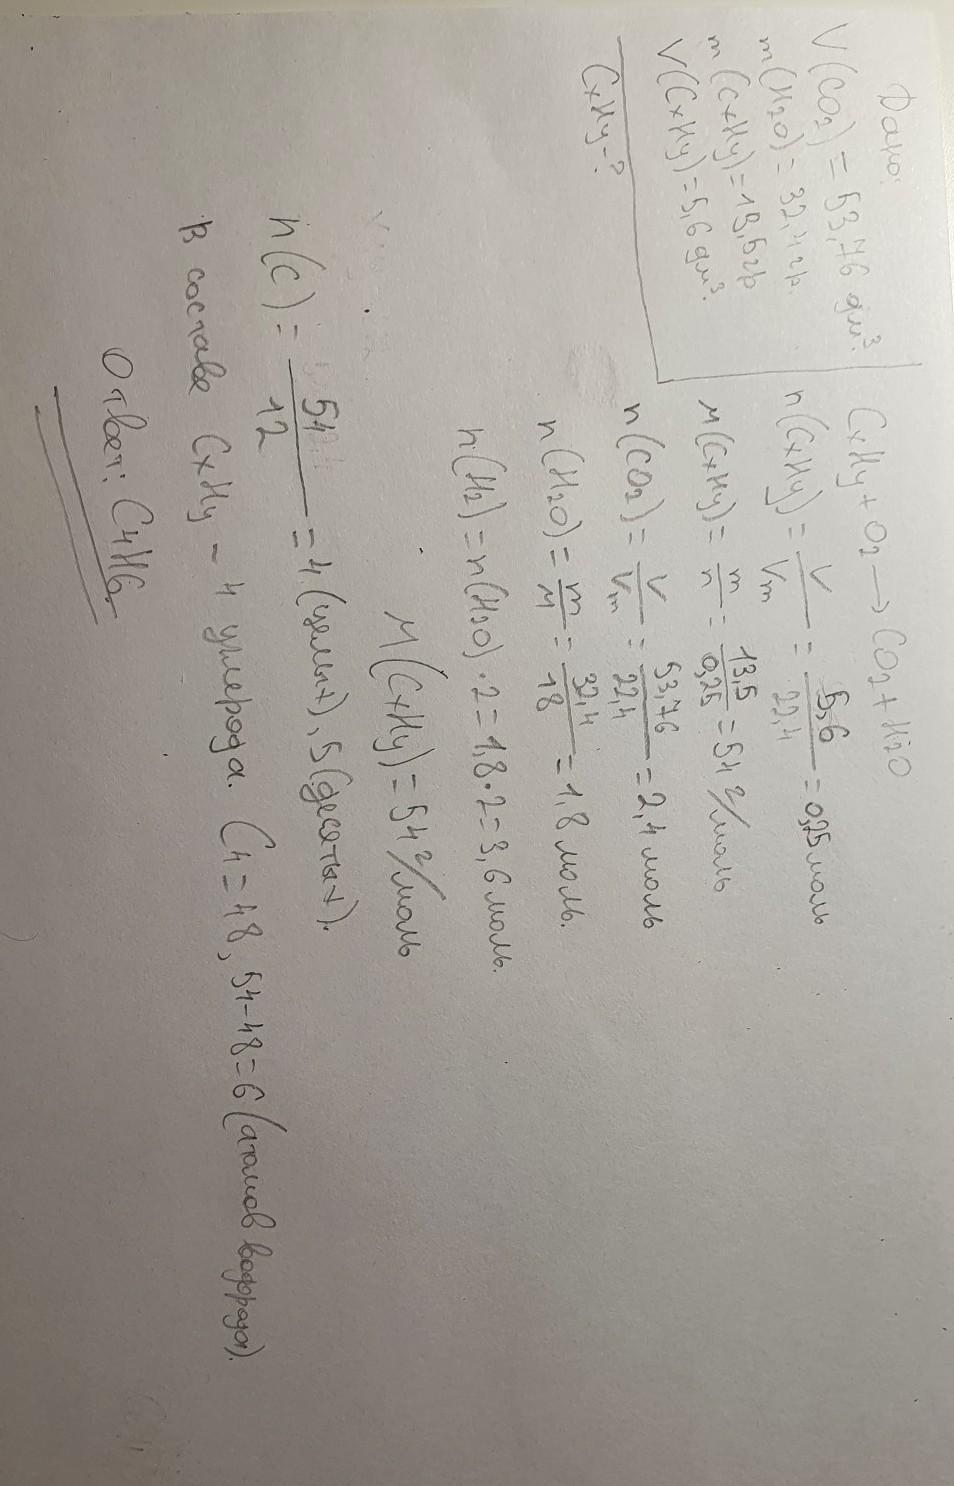 Дано:
V(CO2) = 53,76 дм³.
m(H2O) = 32,4 гр.
m(CxHy) = 13,5 гр
V(CxHy) = 5,6 дм³.
CxHy - ?
CxHy + O2 → CO2 + H2O
n(CxHy) = V/Vm = 5,6/22,4 = 0,25 моль
M(CxHy) = m/n = 13,5/0,25 = 54 г/моль
n(CO2) = V/Vm = 53,76/22,4 = 2,4 моль
n(H2O) = m/M = 32,4/18 = 1,8 моль.
n(H2) = n(H2O) · 2 = 1,8 · 2 = 3,6 моль.
M(CxHy) = 54 г/моль
n(C) = 54/12 = 4 (целых), 5 (десятых).
В составе CxHy - 4 углерода. C4 = 48, 54 - 48 = 6 (атомов водорода).
Ответ: C4H6